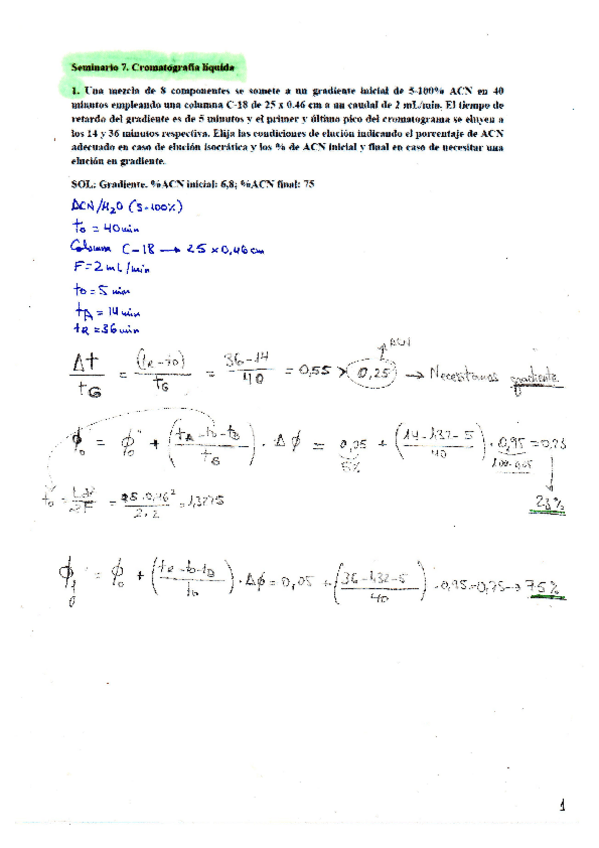 Seminario 7. Cromatografía líquida
1. Una mezcla de 8 componentes se somete a un gradiente inicial de 5-100% ACN en 40
minutos empleando una columna C-18 de 25 x 0.46 cm a un caudal de 2 mL/min. El tiempo de
retardo del gradiente es de 5 minutos y el primer y último pico del cromatograma se eluyen a
los 14 y 36 minutos respectiva. Elija las condiciones de elución indicando el porcentaje de ACN
adecuado en caso de elución isocrática y los % de ACN inicial y final en caso de necesitar una
elución en gradiente.
SOL: Gradiente. %ACN inicial: 6,8; %ACN final: 75
ACN/H2O (5-100%)
tG = 40min
Columna C-18 → 25 x 0,46cm
F = 2mL/min
tD = 5 min
tA = 14min
tR = 36min
ACN
Δt/tG = (tR - t0)/tG = (36-14)/40 = 0,55 > 0,25 → Necesitamos gradiente
ϕ0 = ϕ0 + ((tA - t0 - tD)/tG) · Δϕ = 0,05 + ((14-1,32-5)/40) · 0,95 = 0,23
5% 100-0,05
t0 = Ldc²/2F = 25·0,46²/2·2 = 1,3225
23%
ϕf = ϕ0 + ((tR - t0 - tD)/t0) · Δϕ = 0,05 + ((36-1,32-5)/40) · 0,95 = 0,75 → 75%
1